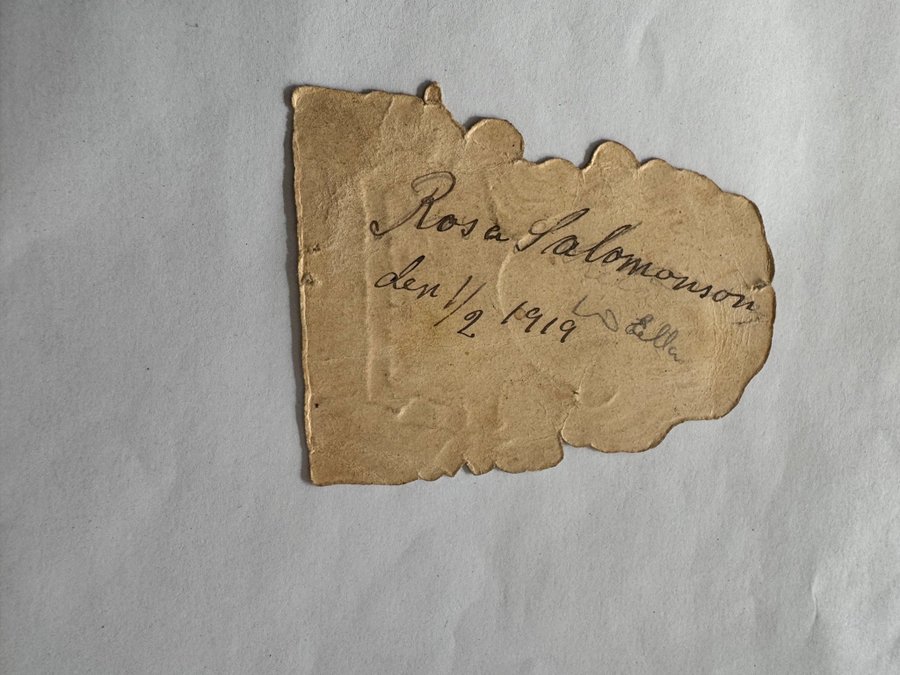 Rosa Salomonson
den 1/2 1919
Ella